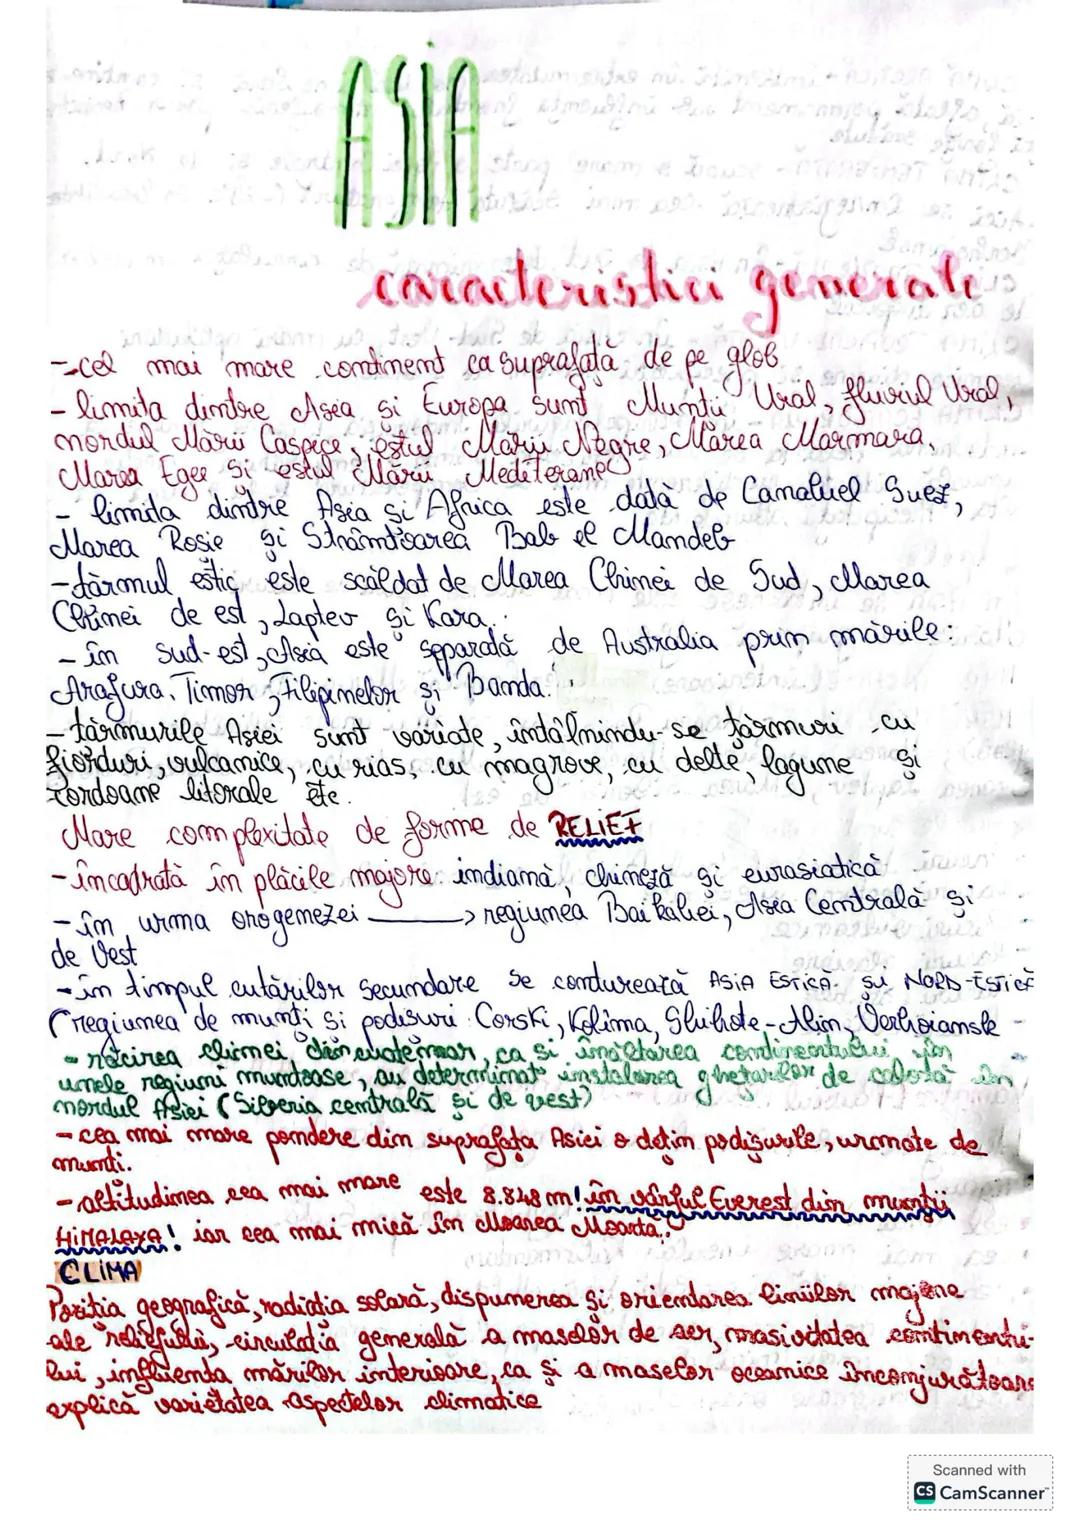 ASIA
caracteristici generale
- cel mai mare continent ca suprafață de pe glob
- limita dintre Asia și Europa sunt Munții Ural, fluviul Ural,
nordul Mării Caspice, estul Mării Negre, Marea Marmara,
Marea Egee și estul Mării Mediterane
- limita dintre Asia și Africa este dată de Canaluel Suez,
Marea Rosie și Strâmtoarea Bab el Mandeb
- țărmul estic este scăldat de Marea Chinei de Sud, Marea
Chinei de est, Laptev și Kara.
- în sud-est, Asia este separată de Australia prin mările:
Arafura, Timor, Filipinelor și Banda.
- țărmurile Asiei sunt variate, întâlnindu-se țărmuri cu
fiorduri, vulcanice, cu rias, cu magrove, cu delte, lagune și
cordoane litorale etc.
Mare complexitate de forme de RELIEF
- încadrată în plăcile majore indiană, chineză și eurasiatică
- în urma orogenezei → regiunea Baikaliei, Asia Centrală și
de Vest
- în timpul cutărilor secundare se conturează ASIA ESTICĂ și NORD-ESTICĂ
(regiunea de munți și podișuri Cerski, Kolîma, Sihote-Alin, Verhoiansk -
- răcirea climei din cuaternar, ca si înălțarea continentului în
unele regiuni muntoase, au determinat instalarea ghețarilor de calotă în
nordul Asiei (Siberia centrală și de vest)
- cea mai mare pondere din suprafața Asiei o dețin podișurile, urmate de
munți.
- altitudinea cea mai mare este 8.848 m! în vârful Everest din munții
HIMALAYA! iar cea mai mică în Marea Moartă.
CLIMA
Poziția geografică, radiația solară, dispunerea și orientarea liniilor majore
ale reliefului, circulația generală a maselor de aer, masivitatea continentu-
lui, influența mărilor interioare, ca și a maselor oceanice înconjurătoare
explică varietatea aspectelor climatice
Scanned with
CS CamScanner